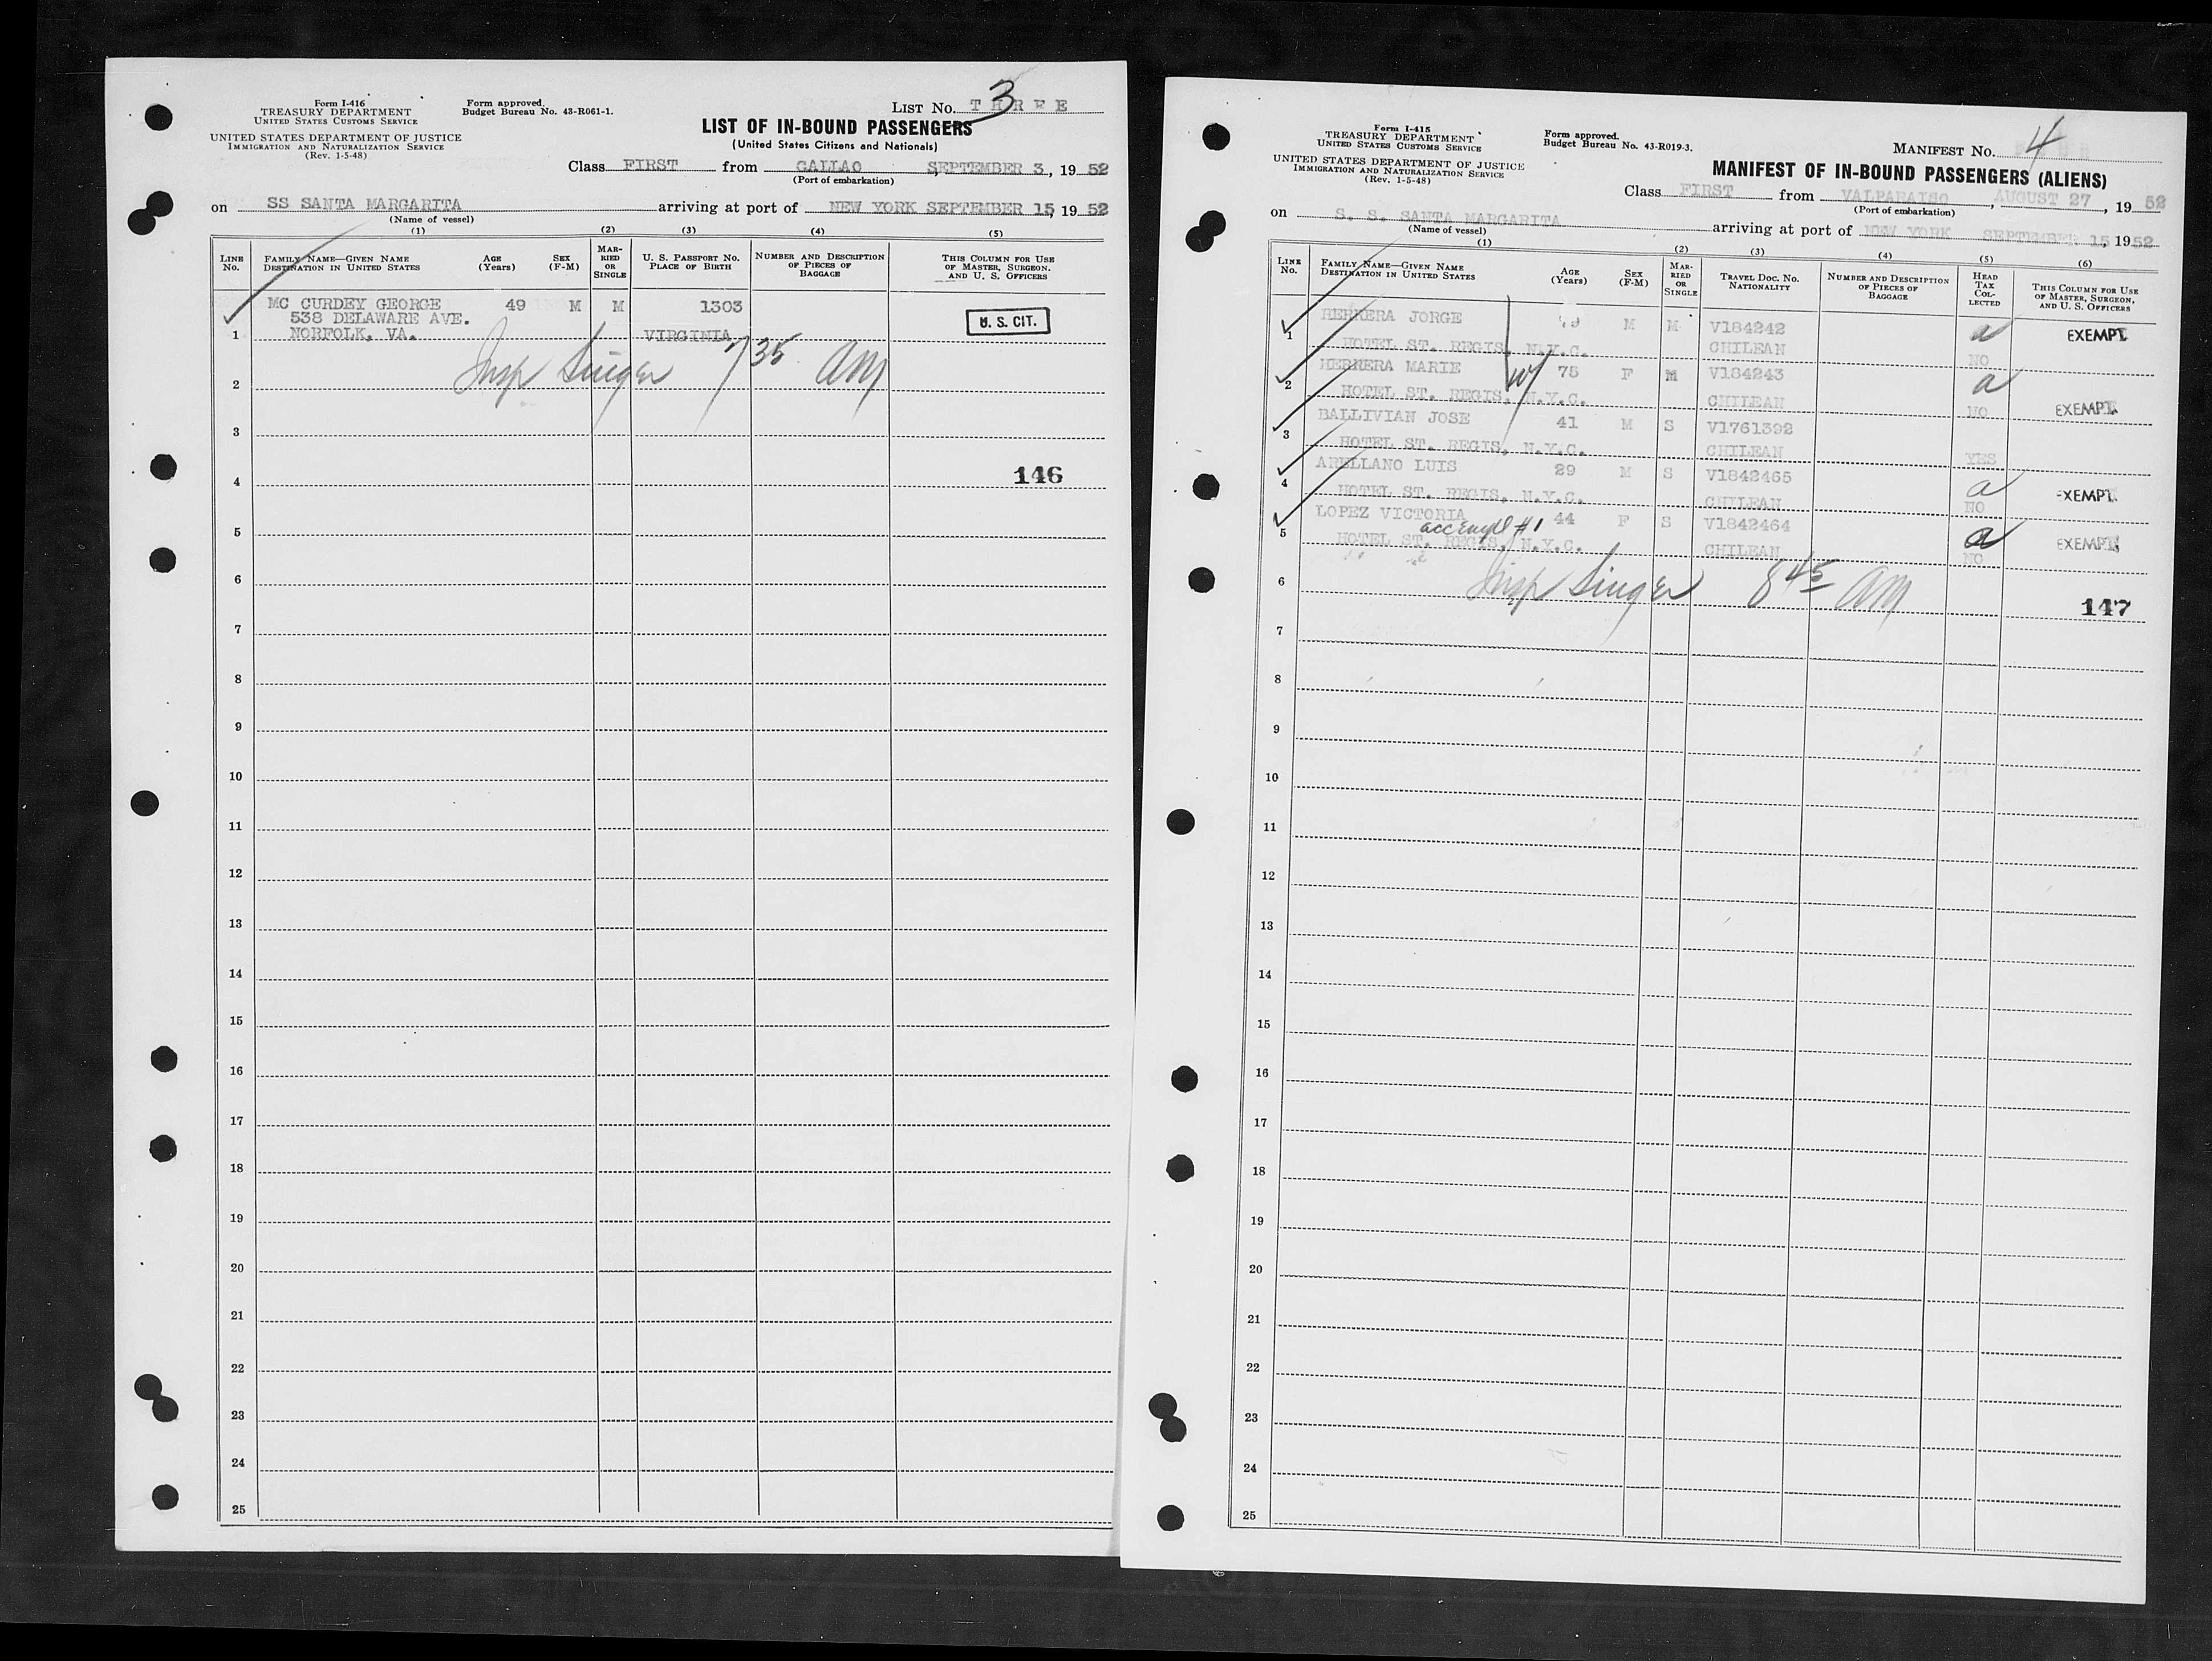 Form I-416
TREASURY DEPARTMENT
UNITED STATES CUSTOMS SERVICE
UNITED STATES DEPARTMENT OF JUSTICE
IMMIGRATION AND NATURALIZATION SERVICE
(Rev. 1-5-48)
Form approved.
Budget Bureau No. 43-R061-1.
LIST NO. THREE 3
LIST OF IN-BOUND PASSENGERS
(United States Citizens and Nationals)
Class FIRST from CALLAO, SEPTEMBER 3, 1952
(Port of embarkation)
on SS SANTA MARGARITA arriving at port of NEW YORK SEPTEMBER 15, 1952
(Name of vessel)
(1) (2) (3) (4) (5)
LINE NO.
FAMILY NAME—GIVEN NAME
DESTINATION IN UNITED STATES
AGE (Years)
SEX (F-M)
MARRIED OR SINGLE
U. S. PASSPORT NO.
PLACE OF BIRTH
NUMBER AND DESCRIPTION OF PIECES OF BAGGAGE
THIS COLUMN FOR USE OF MASTER, SURGEON, AND U. S. OFFICERS
MC CURDEY GEORGE 49 M M 1303
538 DELAWARE AVE. U. S. CIT.
1 NORFOLK, VA. VIRGINIA
Insp Singer 7 35 AM
2
3
146
4
5
6
7
8
9
10
11
12
13
14
15
16
17
18
19
20
21
22
23
24
25
Form I-415
TREASURY DEPARTMENT
UNITED STATES CUSTOMS SERVICE
UNITED STATES DEPARTMENT OF JUSTICE
IMMIGRATION AND NATURALIZATION SERVICE
(Rev. 1-5-48)
Form approved.
Budget Bureau No. 43-R019-3.
MANIFEST NO. 4
MANIFEST OF IN-BOUND PASSENGERS (ALIENS)
Class FIRST from VALPARAISO, AUGUST 27, 1952
(Port of embarkation)
on S. S. SANTA MARGARITA arriving at port of NEW YORK SEPTEMBER 15 1952
(Name of vessel)
(1) (2) (3) (4) (5) (6)
LINE NO.
FAMILY NAME—GIVEN NAME
DESTINATION IN UNITED STATES
AGE (Years)
SEX (F-M)
MARRIED OR SINGLE
TRAVEL DOC. NO.
NATIONALITY
NUMBER AND DESCRIPTION OF PIECES OF BAGGAGE
HEAD TAX COLLECTED
THIS COLUMN FOR USE OF MASTER, SURGEON, AND U. S. OFFICERS
HERRERA JORGE M M V184242 a EXEMPT
1 HOTEL ST. REGIS, N.Y.C. CHILEAN NO
HERRERA MARIE W/ 75 F M V184243 a
2 HOTEL ST. REGIS, N.Y.C. CHILEAN NO EXEMPT
BALLIVIAN JOSE 41 M S V1761392
3 HOTEL ST. REGIS, N.Y.C. CHILEAN YES
ARELLANO LUIS 29 M S V1842465 a EXEMPT
4 HOTEL ST. REGIS, N.Y.C. CHILEAN NO
LOPEZ VICTORIA 44 F S V1842464 a
#1
5 HOTEL ST. REGIS, N.Y.C. CHILEAN NO EXEMPT
6 Insp Singer 8 45 AM
147
7
8
9
10
11
12
13
14
15
16
17
18
19
20
21
22
23
24
25